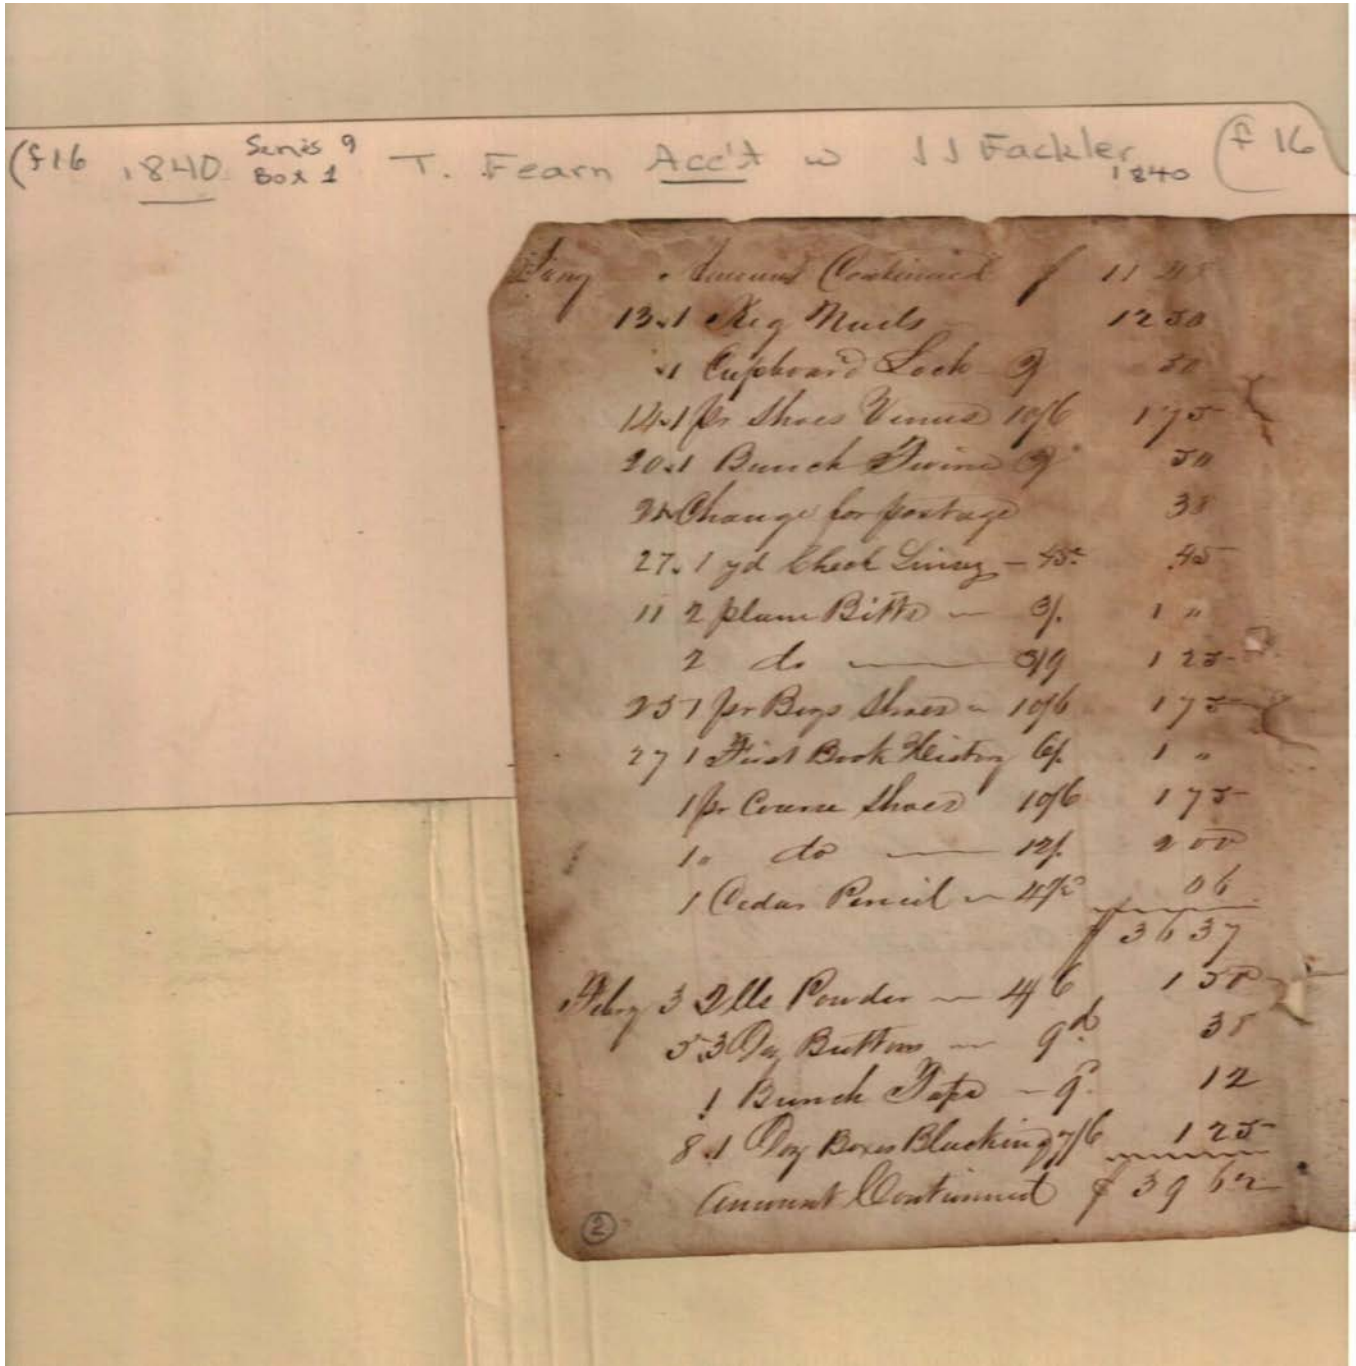 (f16 1840 Series 9 Box 1 T. Fearn Acc't w JJ Fackler 1840 (f 16
Jany Amount Continued $ 11 48
13. 1 Keg Nails 12 50
1 Cupboard Lock 3/ 50
14. 1 pr Shoes Venus 10/6 1 75
20. 1 Bunch Twine 3/ 50
Change for postage 38
27. 1 yd Check Lining - 45c 45
11 2 plane Bitts — 3/. 1 "
2 do — 3/9 1 25
25 1 pr Boys Shoes - 10/6 1 75
27 1 First Book History 6/. 1 "
1 pr Coarse Shoes 10/6 1 75
1 " do — 12/. 2 00
1 Cedar Pencil - 4½d 06
$ 36 37
Feby 3 2 lbs Powder — 4/6 1 50
5 3 Doz Buttons — 9d. 38
1 Bunch Tape - 9d. 12
8. 1 Doz Boxes Blacking 7/6 1 25
Amount Continued $ 39 62
2